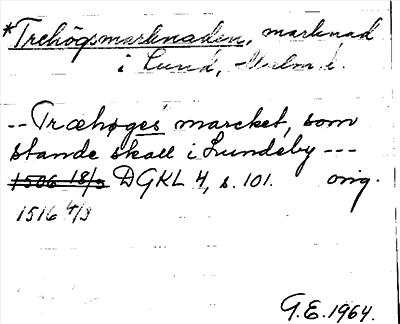 *Trehögsmarknaden, marknad
i Lund, Malm. l.
-- Træhøges marcket, som
stande skall i Lundeby ---
1506 18/3 DGKL 4, s. 101. orig.
1516 4/3
G.E. 1964.